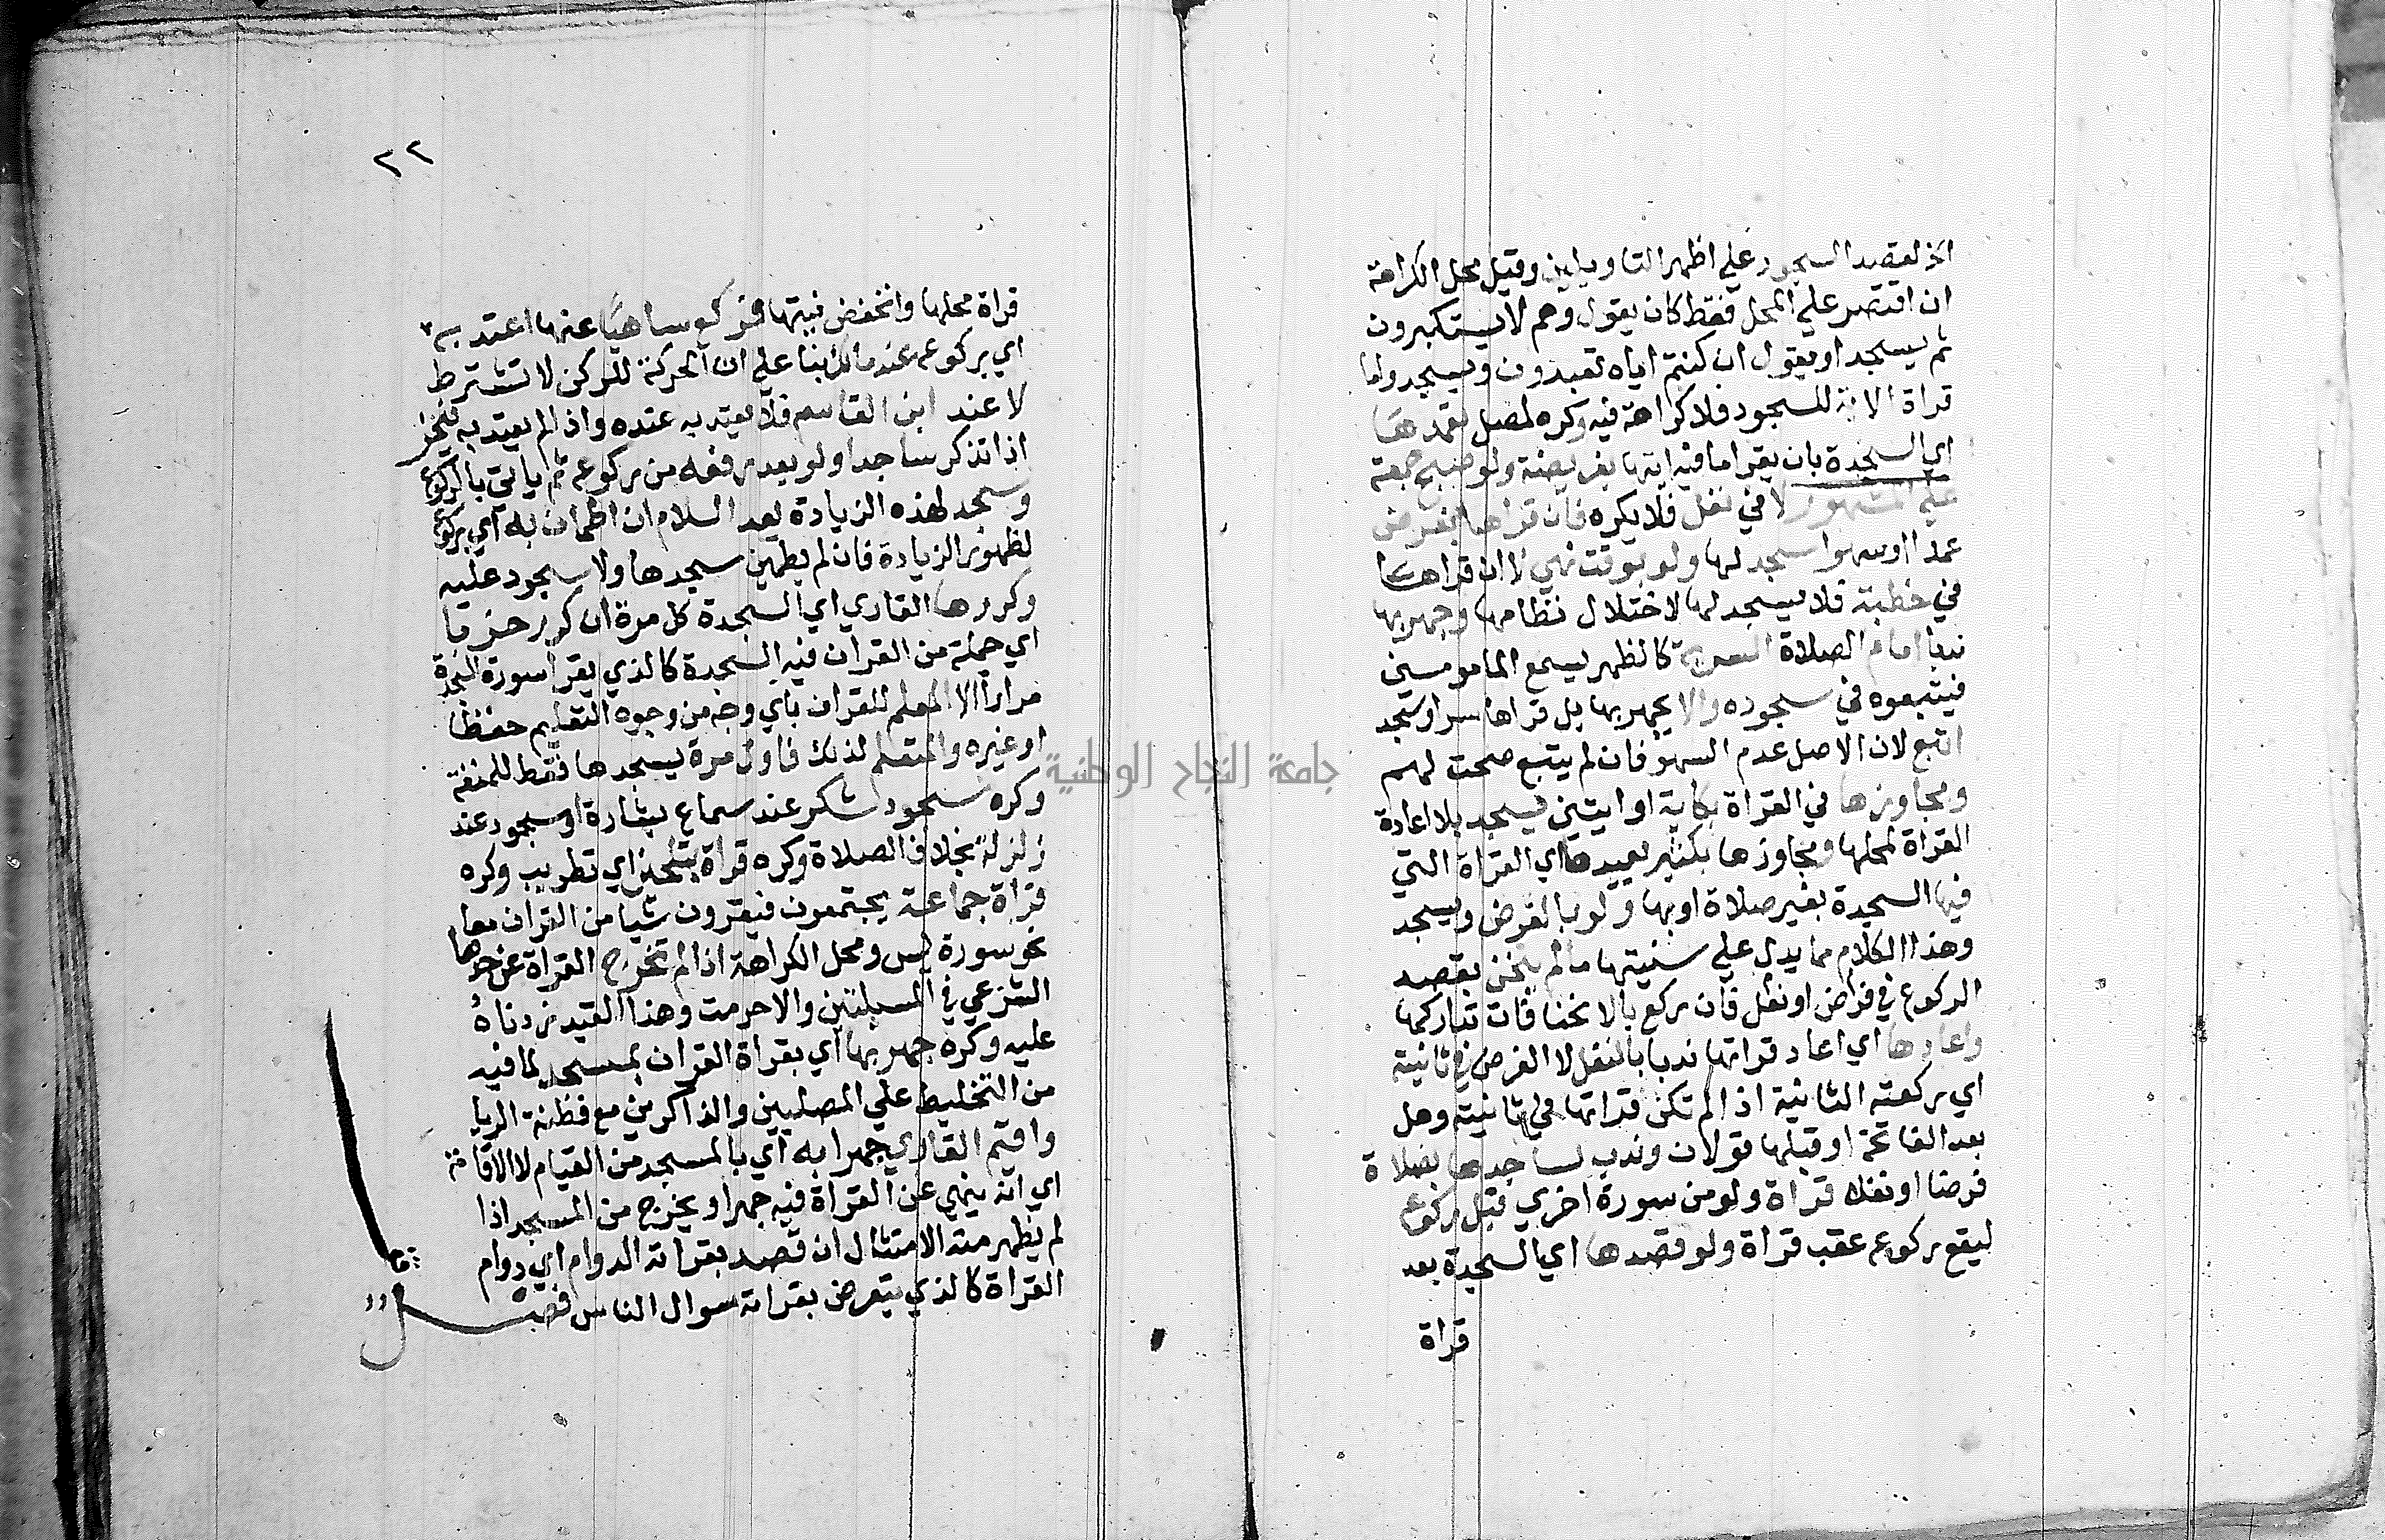 اذ لقصد السجود علي اظهر التاويلين وقيل محل الكراهة
ان اقتصر علي المحل فقط كان يقول وهم لا يستكبرون
ثم يسجد او يقول ان كنتم اياه تعبدون ويسجد واما
قراة الاية للسجود فلا كراهة فيه وكره لمصل تعمدها
اي السجدة بان يقرا ما فيه ايتها بفريضة ولو صبح جمعة
علي المشهور لا في نفل فلا يكره فان قراها بفرض
عمدا او سهوا سجد لها ولو بوقت نهي لا ان قراها
في خطبة فلا يسجد لها لاختلال نظامها وجهر بها
ندبا امام الصلاة السرية كالظهر يسمع المامومين
فيتبعوه في سجوده والا يجهر بها بل قراها سرا وسجد
اتبع لان الاصل عدم السهو فان لم يتبع صحت لهم
ومجاوزها في القراة بكاية او ايتين يسجد بلا اعادة
القراة لمحلها ومجاوزها بكثير يعيدها اي القراة التي
فيها السجدة بغير صلاة او بها ولو بالفرض ويسجد
وهذا الكلام مما يدل علي سنيتها ما لم ينحن بقصد
الركوع في فرض او نفل فان ركع بالانحنا فات تداركها
واعادها اي اعاد قراتها ندبا بالنفل لا الفرض في ثانية
اي ركعته الثانية اذا لم تكن قراتها في ثانيته وهل
بعد الفاتحة او قبلها قولان وندب لساجدها بصلاة
فرضا او نفلا قراة ولو من سورة اخري قبل ركوع
ليقع ركوعه عقب قراة ولو قصدها اي السجدة بعد
قراة
٢٢
قراة محلها وانخفض بنيتها فركع ساهيا عنها اعتد به
اي بركوعه عند مالك بنا علي ان الحركة للركن لا تشترط
لا عند ابن القاسم فلا يعتد به عنده واذا لم يعتد به فيخر
اذا تذكر ساجدا ولو بعد رفعه من ركوعه ثم ياتي بالركوع
وسجد لهذه الزيادة بعد السلام ان اطمان به اي بركوع
لظهور الزيادة فان لم يطمين سجدها ولا سجود عليه
وكررها القاري اي السجدة كل مرة ان كرر حزبا
اي جملة من القران فيه السجدة كالذي يقرا سورة السجدة
مرارا الا المعلم للقران باي وجه من وجوه التعليم حفظا
او غيره والمتعلم لذلك فاول مرة يسجدها فقط للمشقة
وكره سجود شكر عند سماع بشارة او سجود عند
زلزلة بخلاف الصلاة وكره قراة بتلحين اي تطريب وكره
قراة جماعة يجتمعون فيقرون شيا من القران معا
نحو سورة يس ومحل الكراهة اذا لم تخرج القراة عن حدها
الشرعي في المسيلتين والا حرمت وهذا القيد زدناه
عليه وكره جهر بها اي بقراة القران بمسجد لما فيه
من التخليط علي المصليين والذاكرين مع مظنة الريا
واقيم القاري جهرا به اي بالمسجد من القيام لا الاقامة
اي انه ينهي عن القراة فيه جهرا ويخرج من المسجد اذا
لم يظهر منه الامتثال ان قصد بقراته الدوام اي دوام
القراة كالذي يتعرض بقراته سوال الناس فصل
جامعة النجاح الوطنية